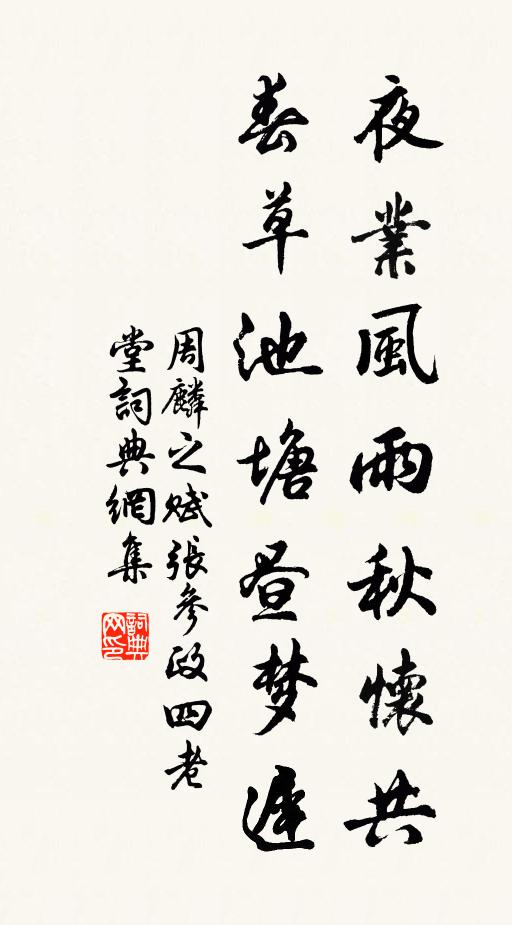 夜業風雨秋懷共
春草池塘昼梦遲
周麟之赋張參政四老
堂詞典網集
詞典网印